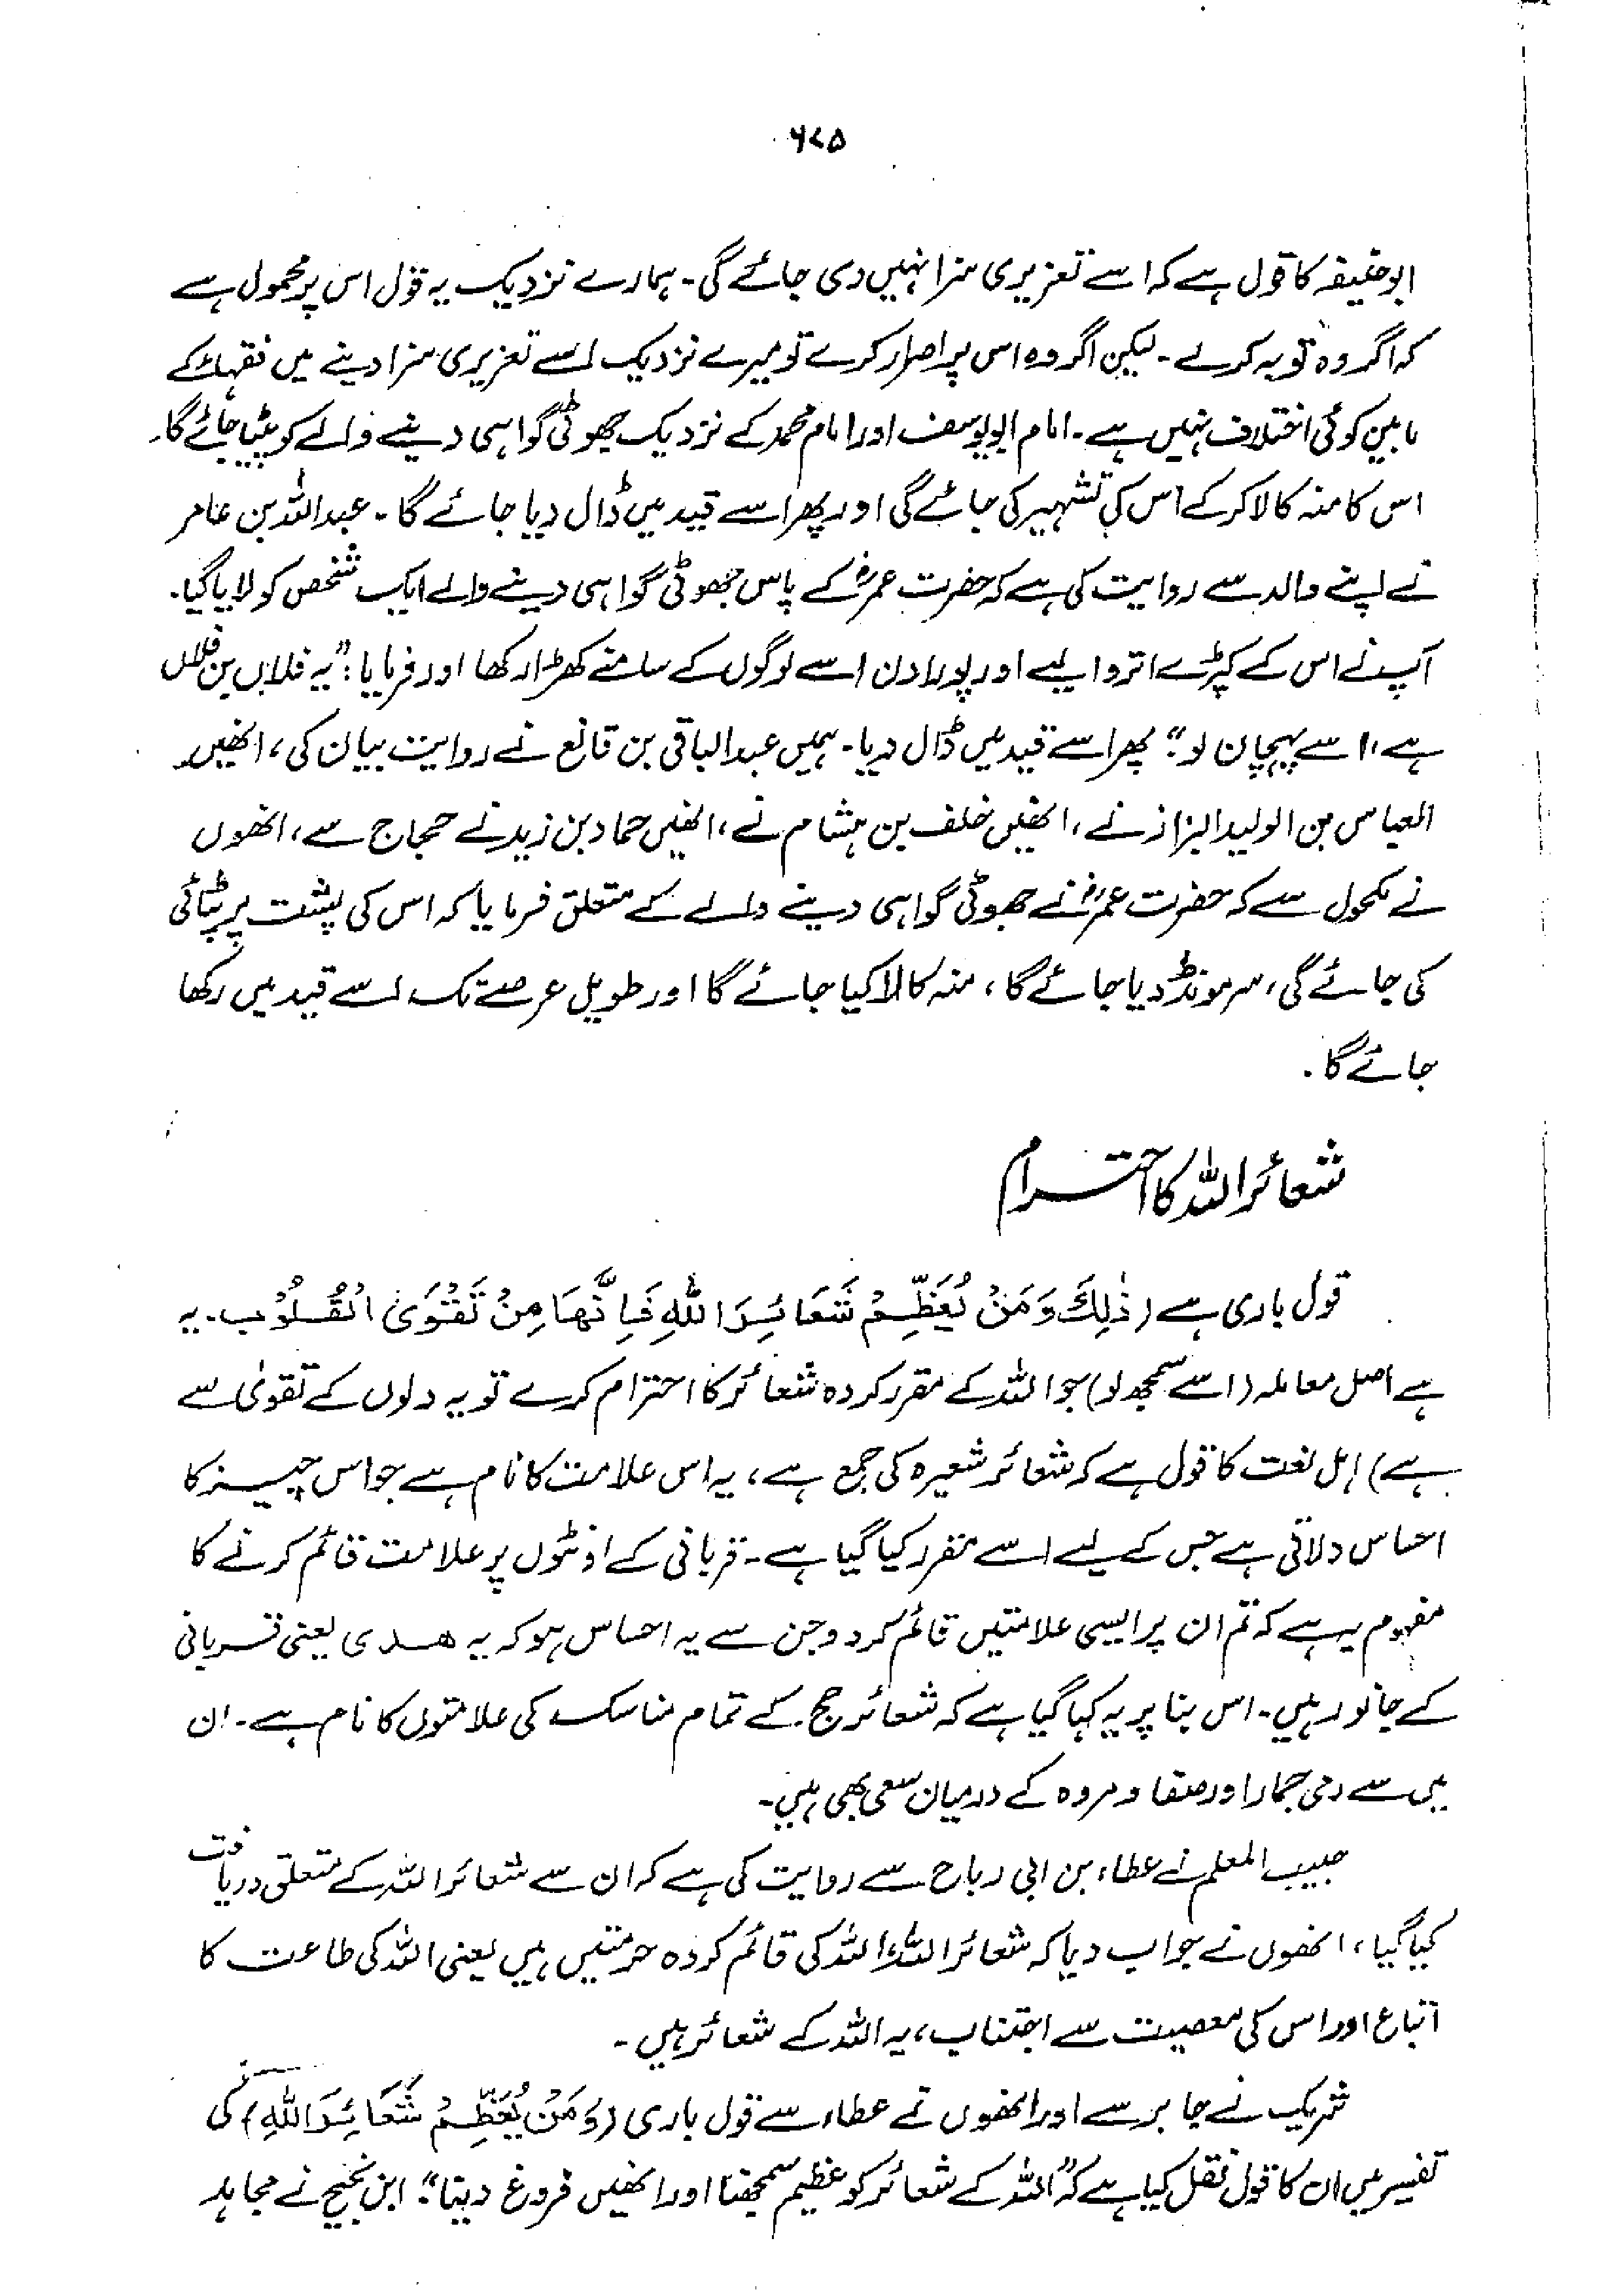 ۶۷۵
ابو حنیفہ کا قول ہے کہ اسے تعزیری سزا نہیں دی جائے گی۔ ہمارے نزدیک یہ قول اس پر محمول ہے
کہ اگر وہ توبہ کرلے۔ لیکن اگر وہ اس پر اصرار کرے تو میرے نزدیک اسے تعزیری سزا دینے میں فقہاء کے
مابین کوئی اختلاف نہیں ہے۔ امام ابو یوسف اور امام محمد کے نزدیک جھوٹی گواہی دینے والے کو پیٹا جائے گا۔
اس کا منہ کالا کر کے اس کی تشہیر کی جائے گی اور پھر اسے قید میں ڈال دیا جائے گا۔ عبداللہ بن عامر
نے اپنے والد سے روایت کی ہے کہ حضرت عمرؓ کے پاس جھوٹی گواہی دینے والے ایک شخص کو لایا گیا۔
آپ نے اس کے کپڑے اتروا لیے اور پورا دن اسے لوگوں کے سامنے کھڑا رکھا اور فرمایا: "یہ فلاں بن فلاں
ہے، اسے پہچان لو" پھر اسے قید میں ڈال دیا۔ ہمیں عبدالباقی بن قانع نے روایت بیان کی، انھیں
العباس بن الولید البزاز نے، انھیں خلف بن ہشام نے، انھیں حماد بن زید نے حجاج سے، انھوں
نے مکحول سے کہ حضرت عمرؓ نے جھوٹی گواہی دینے والے کے متعلق فرمایا کہ اس کی پشت پر پٹائی
کی جائے گی، سر مونڈ دیا جائے گا، منہ کالا کیا جائے گا اور طویل عرصے تک اسے قید میں رکھا
جائے گا۔
شعائر اللہ کا احترام
قول باری ہے (ذٰلِكَ وَمَنْ يُعَظِّمْ شَعَائِرَ اللّٰهِ فَاِنَّهَا مِنْ تَقْوَى الْقُلُوْبِ۔ یہ
ہے اصل معاملہ (اسے سمجھ لو) جو اللہ کے مقرر کردہ شعائر کا احترام کرے تو یہ دلوں کے تقویٰ سے
ہے) اہل لغت کا قول ہے کہ شعائر شعیرہ کی جمع ہے، یہ اس علامت کا نام ہے جو اس چیز کا
احساس دلاتی ہے جس کے لیے اسے مقرر کیا گیا ہے۔ قربانی کے اونٹوں پر علامت قائم کرنے کا
مفہوم یہ ہے کہ تم ان پر ایسی علامتیں قائم کردو جن سے یہ احساس ہو کہ یہ ھدی یعنی قربانی
کے جانور ہیں۔ اس بنا پر یہ کہا گیا ہے کہ شعائر حج کے تمام مناسک کی علامتوں کا نام ہے۔ ان
میں سے رمی جمار اور صفا و مروہ کے درمیان سعی بھی ہیں۔
حبیب المعلم نے عطاء بن ابی رباح سے روایت کی ہے کہ ان سے شعائر اللہ کے متعلق دریافت
کیا گیا، انھوں نے جواب دیا کہ شعائر اللہ، اللہ کی قائم کردہ حرمتیں ہیں یعنی اللہ کی طاعت کا
اتباع اور اس کی معصیت سے اجتناب، یہ اللہ کے شعائر ہیں۔
شریک نے جابر سے اور انھوں نے عطاء سے قول باری (وَمَنْ يُعَظِّمْ شَعَائِرَ اللّٰهِ) کی
تفسیر میں ان کا قول نقل کیا ہے کہ "اللہ کے شعائر کو عظیم سمجھنا اور انھیں فروغ دینا"۔ ابن نجیح نے مجاہد